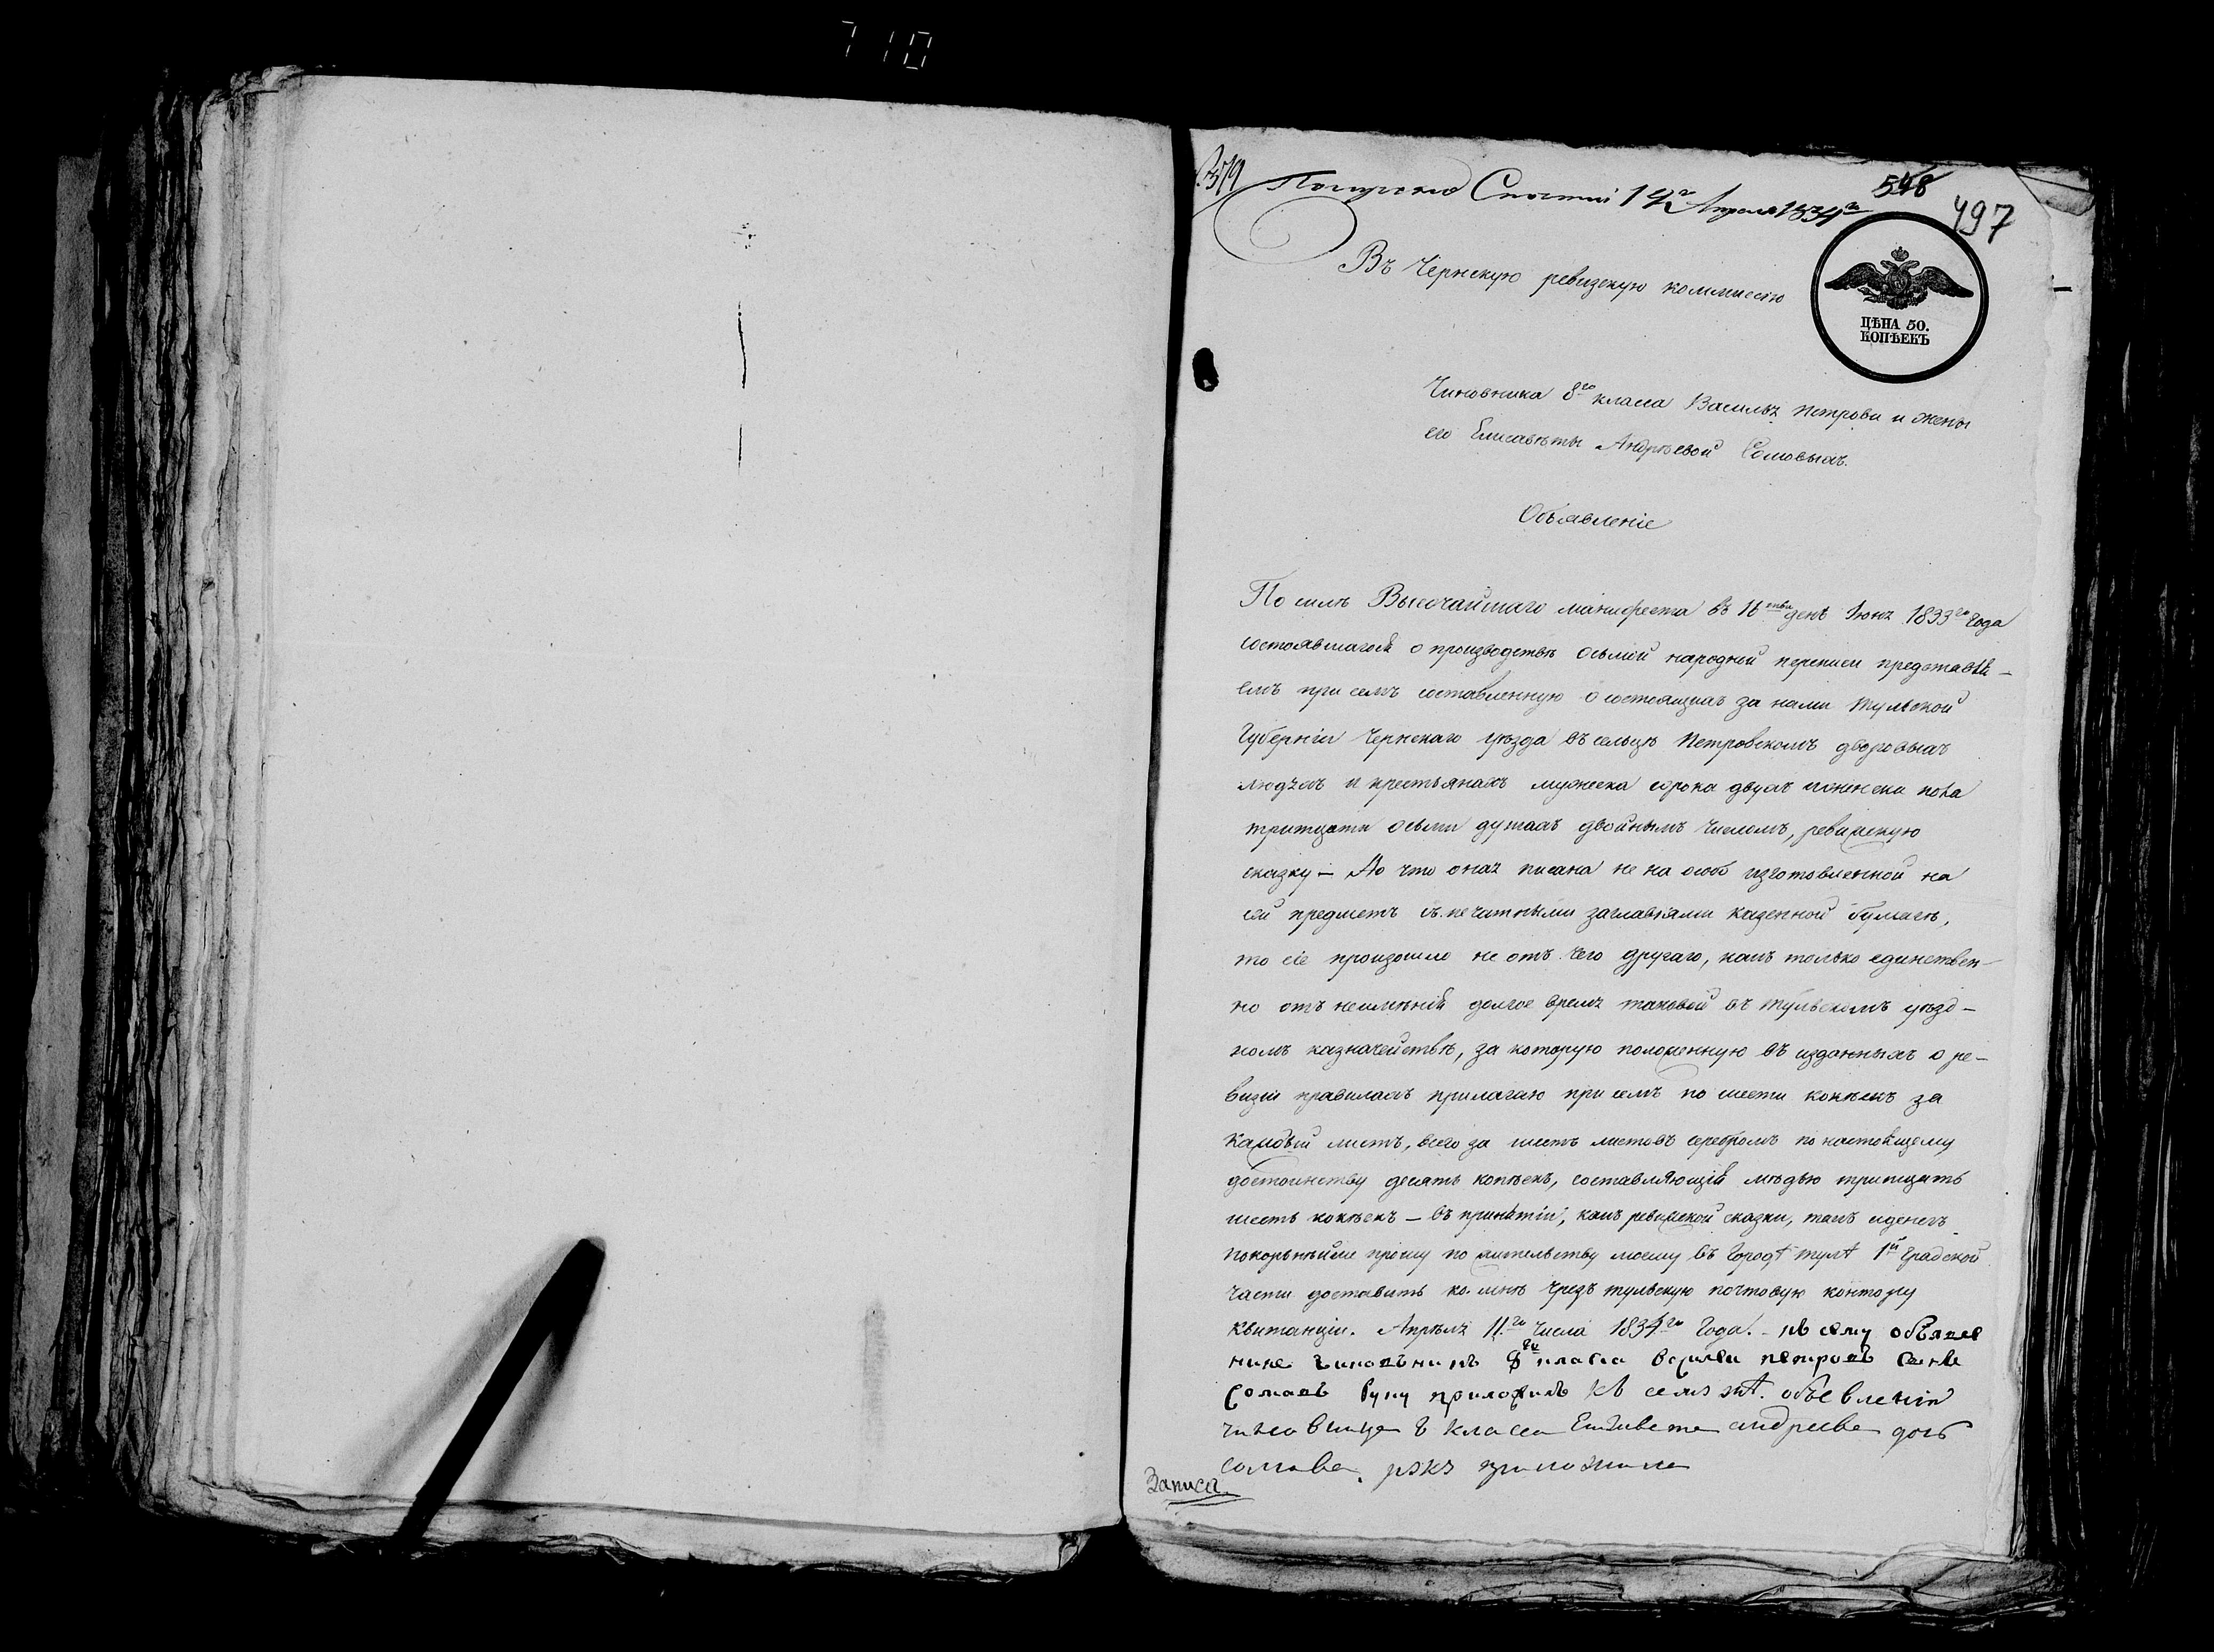 710
579
Получено 12го Апреля 1834го
548
497
Въ Чернскую ревизскую коммиссію
ЦѢНА 50.
КОПѢЕКЪ
Чиновника 8го класса Василья Петрова и жены
его Елисаветы Андрѣевой Сомовыхъ.
Объявленіе
По силѣ Высочайшаго манифеста въ 16 день Іюня 1833го года
состоявшагося о производствѣ осьмой народной переписи представля-
емъ при семъ составленную о состоящихъ за нами Тульской
Губерніи Чернскаго уѣзда въ сельцѣ Петровскомъ дворовыхъ
людяхъ и крестьянахъ мужеска сорока двухъ и женска пола
тритцати осьми душахъ двойнымъ числомъ, ревижскую
сказку – А что оная писана не на особо изготовленной на
сей предметъ съ печатными заглавіями казенной бумагѣ,
то сіе произошло не отъ чего другаго, какъ только единствен-
но отъ неимѣнія долгое время таковой въ Тульскомъ уѣзд-
номъ казначействѣ, за которую положенную въ изданныхъ о ре-
визіи правилахъ прилагаю при семъ по шести копѣекъ за
каждый листъ, всего за шесть листовъ серебромъ по настоящему
достоинству десять копѣекъ, составляющія мѣдью тритцать
шесть копѣекъ – въ принятіи, какъ ревижской сказки, такъ и денегъ
покорнѣйше прошу по жительству моему въ городѣ Тулѣ 1й Градской
части доставить ко мнѣ чрезъ тульскую почтовую контору
квитанціи. Апрѣля 11го числа 1834го года. къ сему объявле
нию чиновъникъ 8го класа василеи петровъ сынъ
Сомовъ руку приложилъ къ семв объевленію
чиновница 8 класса Елизавета андреева дочь
сомова руку приложила
Записа.